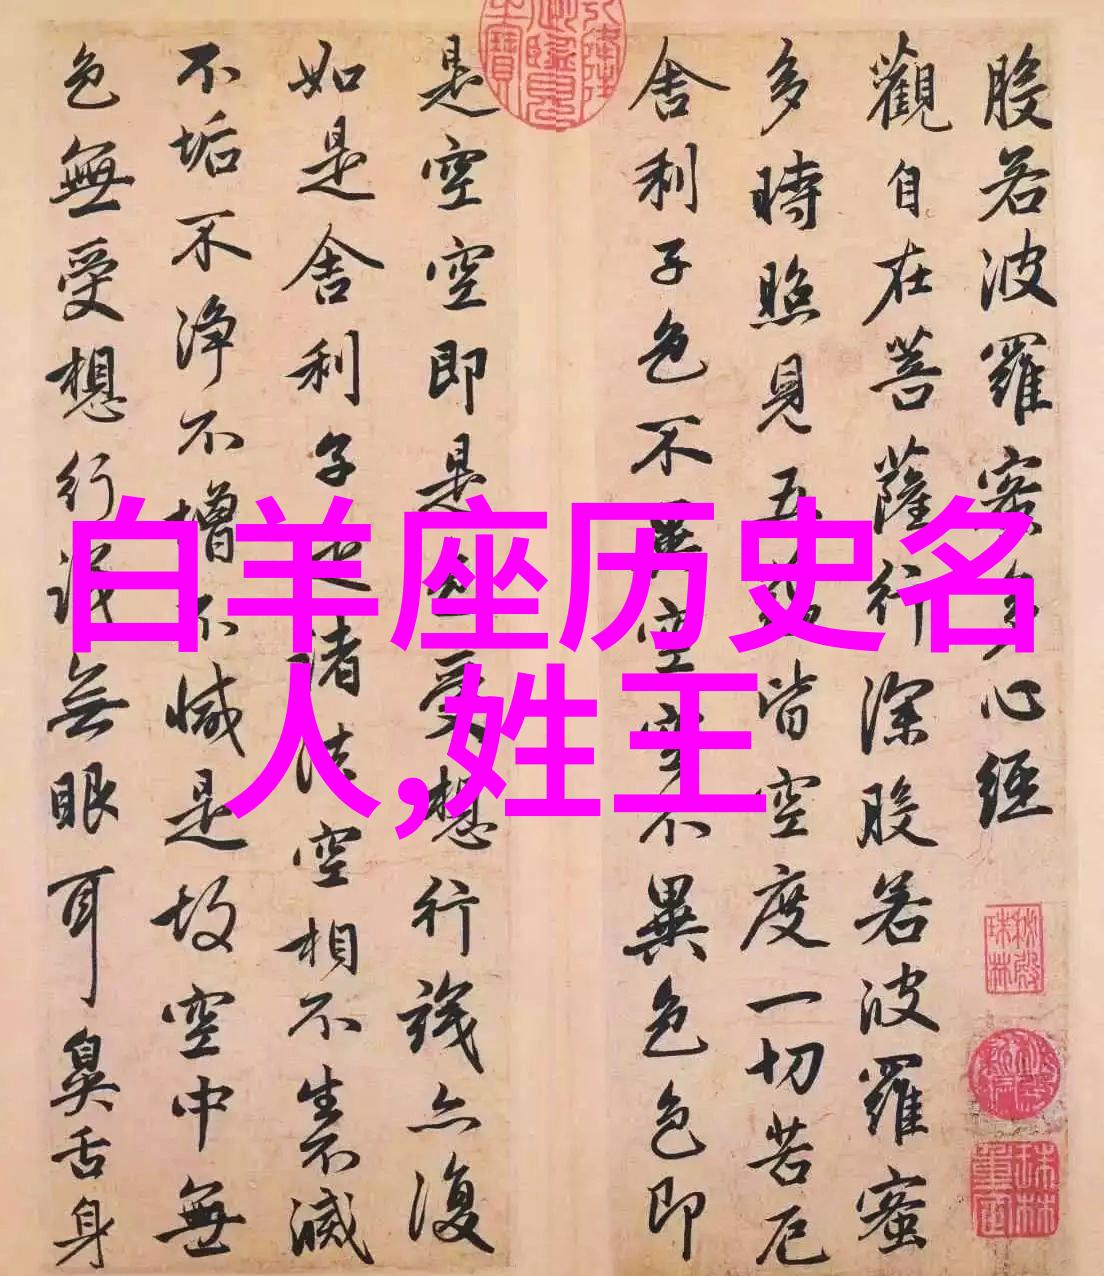 白羊座历史名
人,姓王
般若波羅蜜多心經
觀自在菩薩行深般若波羅蜜
多時照見五蘊皆空度一切苦厄
舍利子色不異空空不異色色即
是空空即是色受想行識亦復
如是舍利子是諸法空相不生不滅
不垢不净不增不减是故空中無
色無受想行識無眼耳鼻舌身